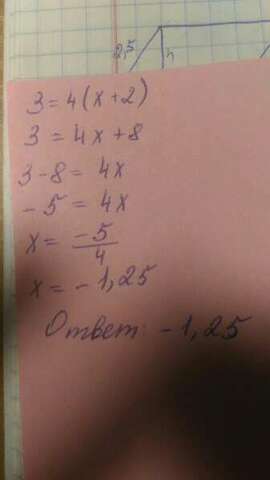 2,5
4
3=4(x+2)
3 = 4x+8
3-8 = 4x
-5 = 4x
x = -5/4
x = -1,25
Ответ: -1,25